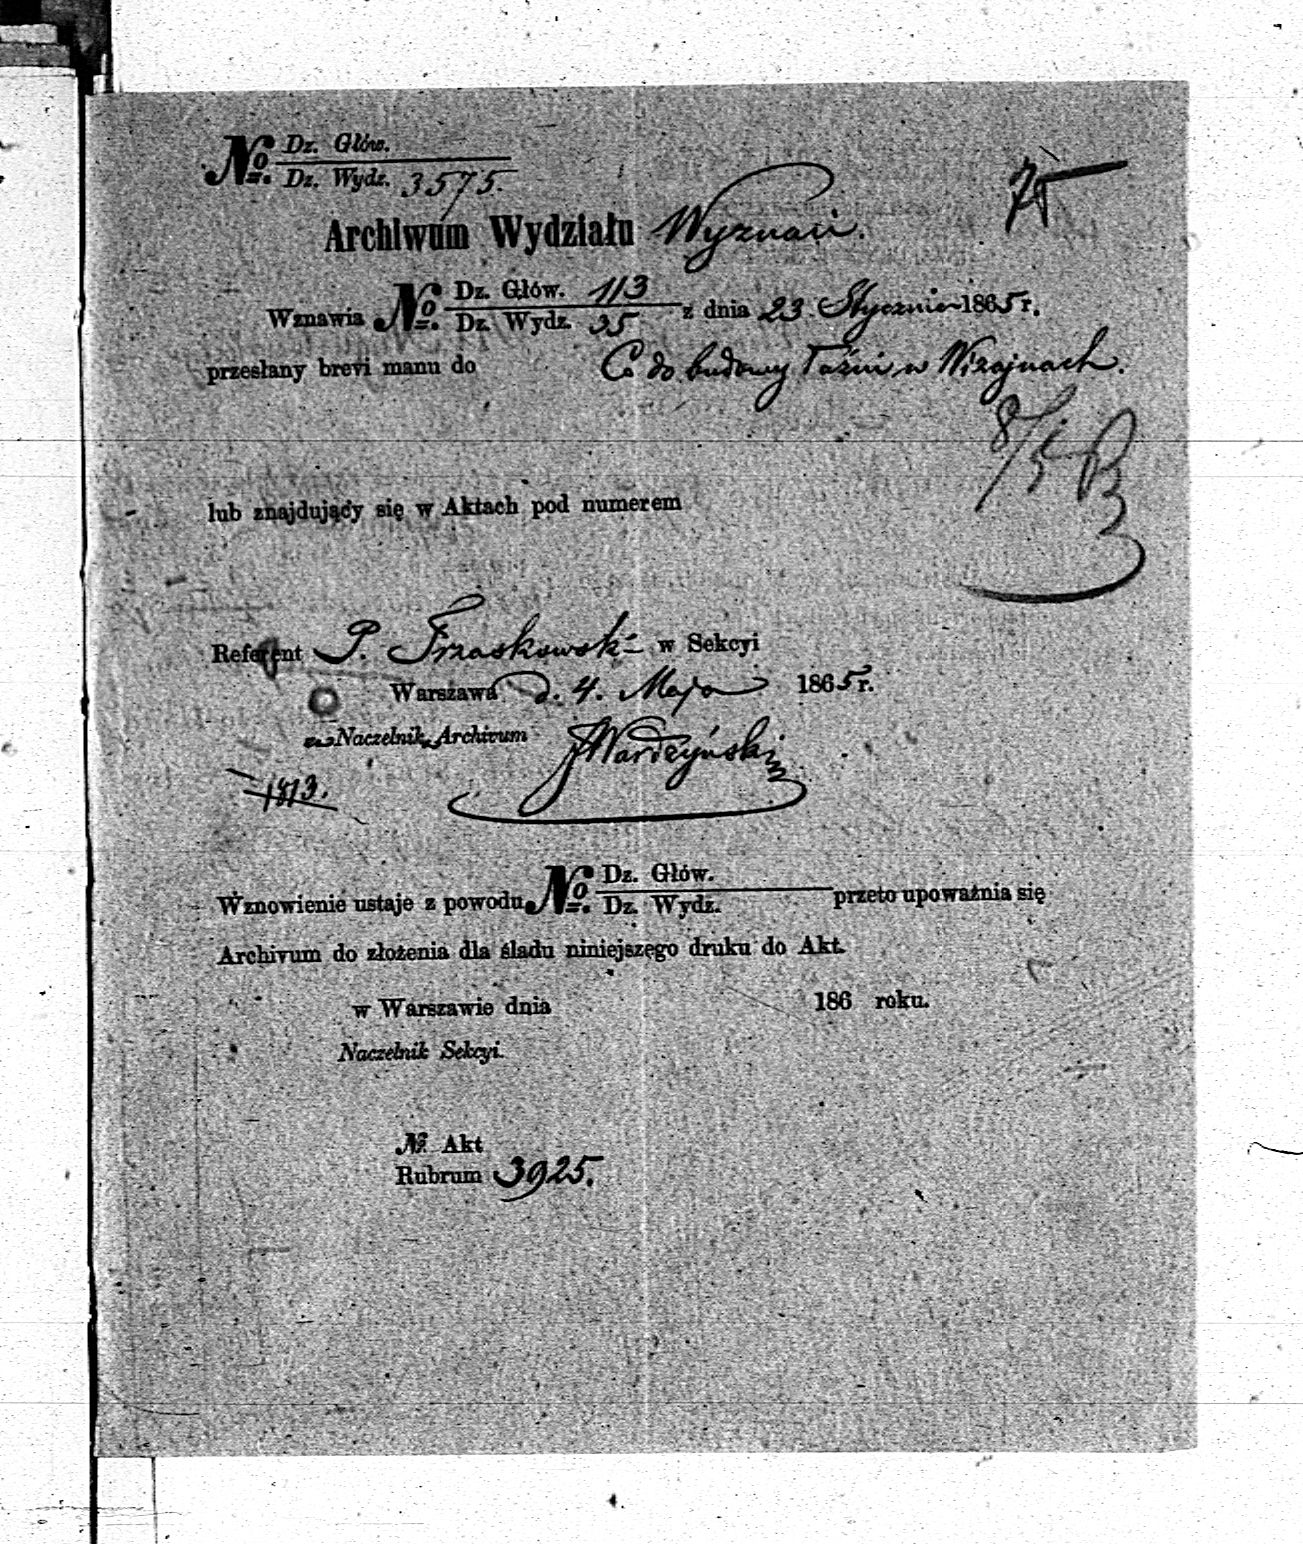 No. Dz. Głów.
Dz. Wydz. 3575.
75
Archiwum Wydziału Wyznań.
Wznawia No. Dz. Głów. 113
Dz. Wydz. 35 z dnia 23 Stycznia 1865 r.
przesłany brevi manu do Co do budowy Łaźni w Wizajnach.
8/5
lub znajdujący się w Aktach pod numerem
Referent P. Trzaskowski w Sekcyi
Warszawa d. 4. Maja 1865 r.
Naczelnik Archivum JWardzyński
1813.
Wznowienie ustaje z powodu No. Dz. Głów.
Dz. Wydz. przeto upoważnia się
Archivum do złożenia dla śladu niniejszego druku do Akt.
w Warszawie dnia 186 roku.
Naczelnik Sekcyi.
No. Akt
Rubrum 3925.